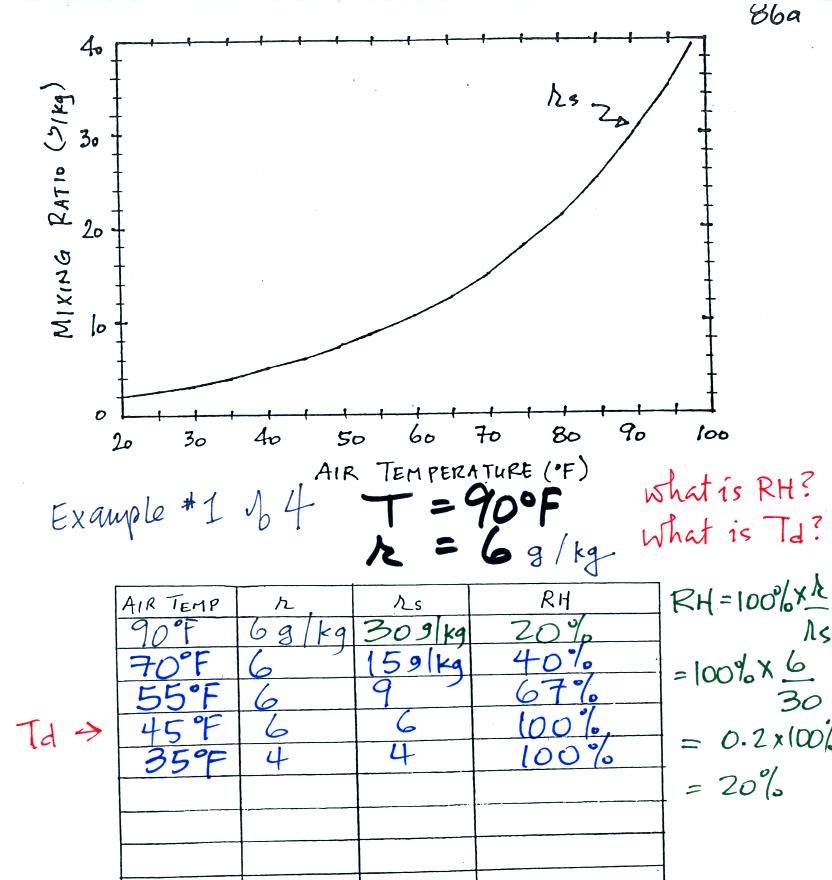 86a
40
30
20
10
0
MIXING RATIO (g/kg)
rs
20 30 40 50 60 70 80 90 100
AIR TEMPERATURE (°F)
Example #1 of 4
T = 90°F
r = 6 g/kg
what is RH?
what is Td?
AIR TEMP r rs RH
90°F 6 g/kg 30 g/kg 20%
70°F 6 15 g/kg 40%
55°F 6 9 67%
Td → 45°F 6 6 100%
35°F 4 4 100%
RH = 100% × r/rs
= 100% × 6/30
= 0.2 × 100%
= 20%